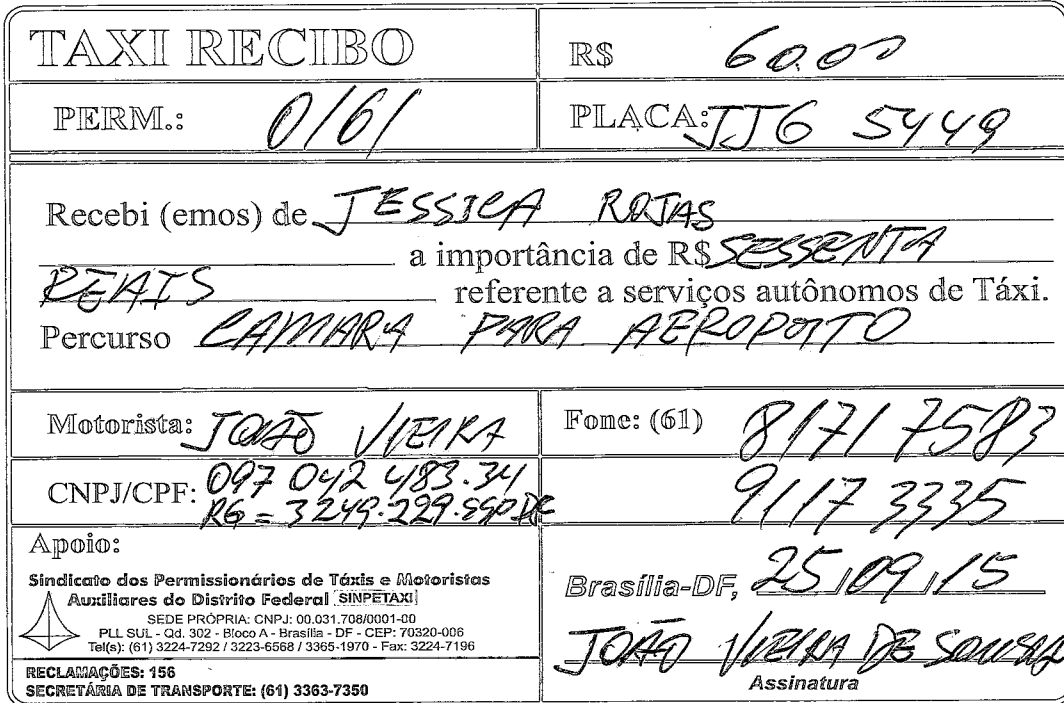 TAXI RECIBO
R$ 60.00
PERM.: 0161
PLACA: JJG 5449
Recebi (emos) de JESSICA ROJAS
a importância de R$ SESSENTA
REAIS referente a serviços autônomos de Táxi.
Percurso CAMARA PARA AEROPORTO
Motorista: JOÃO VIEIRA
Fone: (61) 8171 7583
CNPJ/CPF: 097 042 483.34
RG = 3249.229.SSP.DF
9117 3335
Apoio:
Sindicato dos Permissionários de Táxis e Motoristas
Auxiliares do Distrito Federal SINPETAXI
SEDE PRÓPRIA: CNPJ: 00.031.708/0001-00
PLL SUL - Qd. 302 - Bloco A - Brasília - DF - CEP: 70320-006
Tel(s): (61) 3224-7292 / 3223-6568 / 3365-1970 - Fax: 3224-7196
RECLAMAÇÕES: 156
SECRETÁRIA DE TRANSPORTE: (61) 3363-7350
Brasília-DF, 25/09/15
JOÃO VIEIRA DE SOUSA
Assinatura